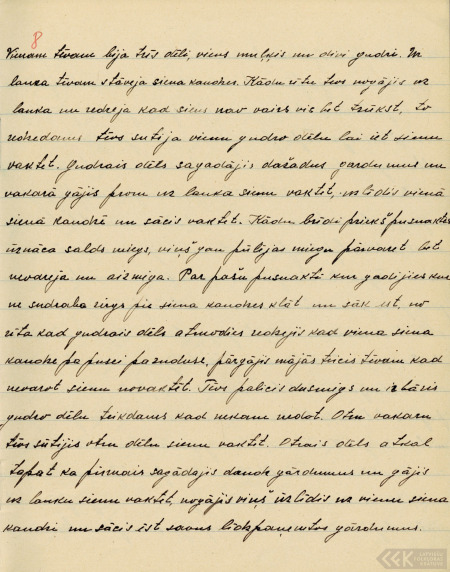 8
Vienam tēvam bija trīs dēli, viens muļķis un divi gudri. Uz
lauka tēvam stāveja siena kaudzes. Kādu rītu tēvs nogājis uz
lauka un redzeja kad siens nav vairs vis bet trūkst, to
redzedams tēvs sutija vienu gudro dēlu lai iet sienu
vaktēt. Gudrais dēls sagadājis dažadus gardumus un
vakarā gājis prom uz lauka sienu vaktēt, uzlīdis vienā
siena kaudzē un sācis vaktēt. Kādu brīdi priekš pusnakts
uznāca salds miegs, viņš gan pūlejas miegu pārvaret bet
nevareja un aizmiga. Par pašu pusnakti kur gadijies kur
ne sudraba zirgs pie siena kaudzes klāt un sāk ēst, no
rīta kad gudrais dēls atmodies redzejis kad viena siena
kaudze pa pusei pazuduse, pārgājis mājās teicis tēvam kad
nevarot sienu novaktēt. Tēvs palicis dusmigs un izbāris
gudro dēlu teikdams kad nekam nedot. Otru vakaru
tēvs sūtijis otru dēlu sienu vaktēt. Otrais dēls atkal
tapat ka pirmais sagādajis daudz gārdumus un gājis
uz lauku sienu vaktēt, nogājis viņš uzlīdis uz vienu siena
kaudzi un sācis ēst savus līdzpaņemtos gārdumus.
LFK